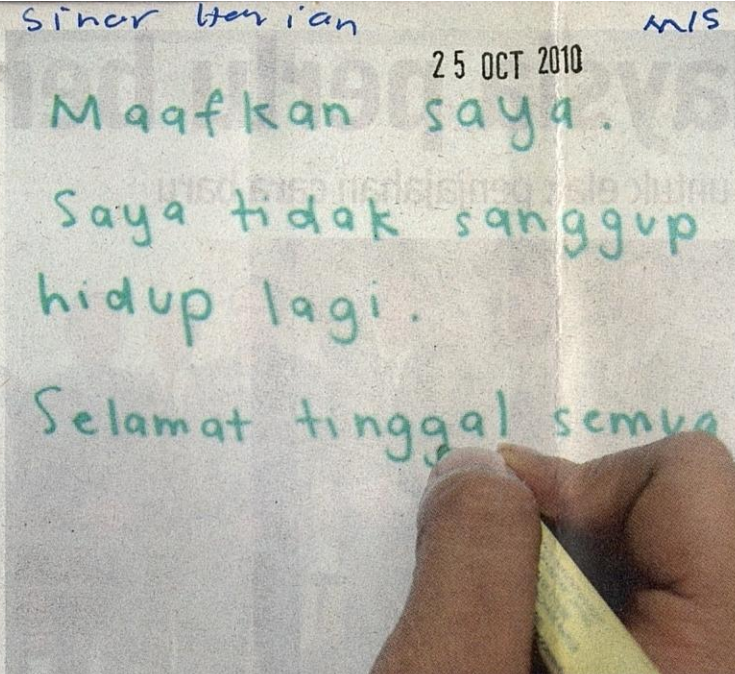 Sinar Harian m/s
25 OCT 2010
Maafkan saya.
Saya tidak sanggup
hidup lagi.
Selamat tinggal semua